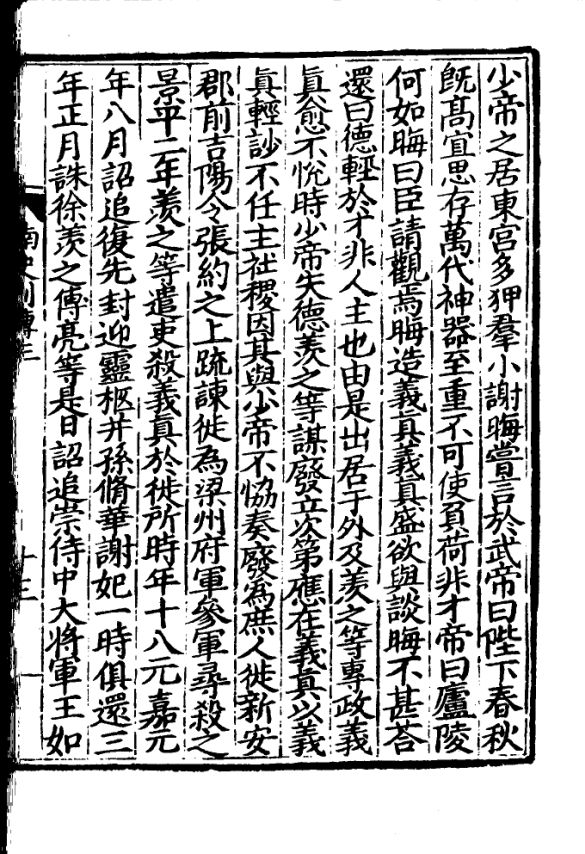 少帝之居東宮多狎羣小謝晦嘗言於武帝曰陛下春秋
旣髙宜思存萬代神器至重不可使負荷非才帝曰廬陵
何如晦曰臣請觀焉晦造義真義真盛欲與談晦不甚荅
還曰德輕於才非人主也由是出居于外及羨之等專政義
真愈不恱時少帝失德羨之等謀廢立次第應在義真以義
真輕訬不任主社稷因其與少帝不協奏廢為庶人徙新安
郡前吉陽令張約之上疏諫徙為梁州府軍參軍尋殺之
景平二年羨之等遣吏殺義真於徙所時年十八元嘉元
年八月詔追復先封迎靈柩并孫脩華謝妃一時俱還三
年正月誅徐羨之傅亮等是日詔追崇侍中大將軍王如
南史列傳三
十三